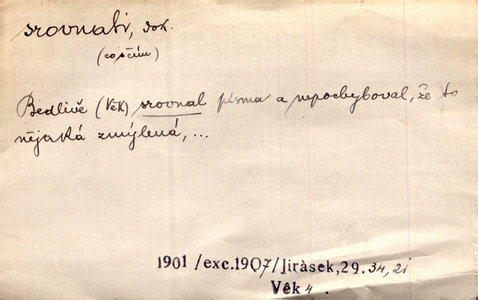 srovnati, dok.
(co s čím)
Bedlivě (Věk) srovnal písma a nepochyboval, že to
nějaká zmýlená, ...
1901 /exc.1907/Jiràsek,29. 34, 21
Vêk 4 .